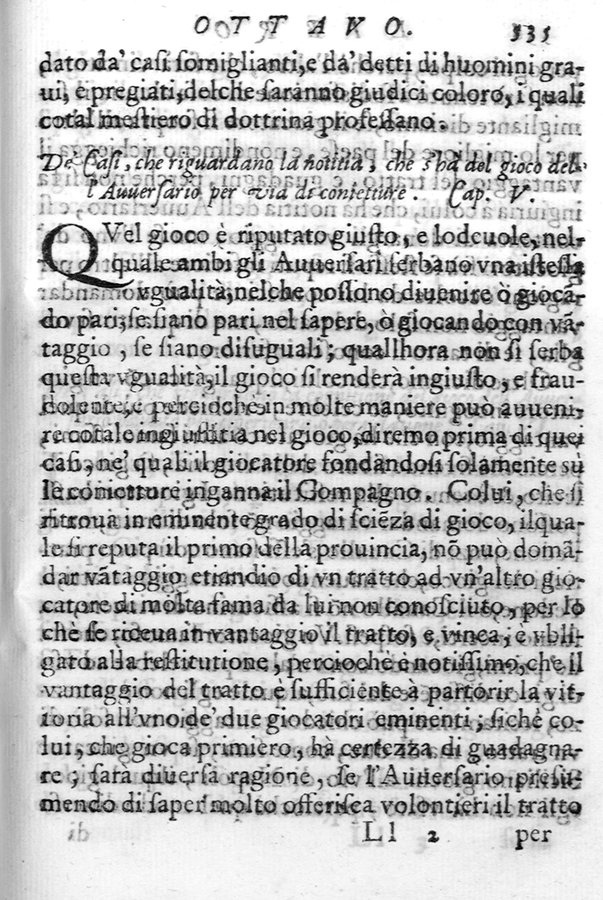 OTTAVO. 535
dato da' casi somiglianti, e da' detti di huomini gra-
ui, e pregiati, delche saranno giudici coloro, i quali
cotal mestiero di dottrina professano.
De' Casi, che riguardano la notitia, che s'ha del gioco del-
l'Auuersario per via di conietture. Cap. V.
QVel gioco è riputato giusto, e lodeuole, nel-
quale ambi gli Auuersari serbano vna istessa
vgualità, nelche possono diuenire ò giocā-
do pari, se siano pari nel sapere, ò giocando con vā-
taggio, se siano disuguali; quallhora non si serba
questa vgualità, il gioco si renderà ingiusto, e frau-
dolente, e percioche in molte maniere può auueni-
re cotale ingiustitia nel gioco, diremo prima di quei
casi, ne' quali il giocatore fondandosi solamente sù
le conietture inganna il Compagno. Colui, che si
ritroua in eminente grado di sciēza di gioco, ilqua-
le si reputa il primo della prouincia, nō può domā-
dar vātaggio etiandio di vn tratto ad vn'altro gio-
catore di molta fama da lui non conosciuto, per lo
chè se riceua in vantaggio il tratto, e vinca, è vbli-
gato alla restitutione, percioche è notissimo, che il
vantaggio del tratto è sufficiente à partorir la vit-
toria all'vno de' due giocatori eminenti, sichè co-
lui, che gioca primiero, hà certezza di guadagna-
re; sarà diuersa ragione, se l'Auuersario presu-
mendo di saper molto offerisca volontieri il tratto
Ll 2 per